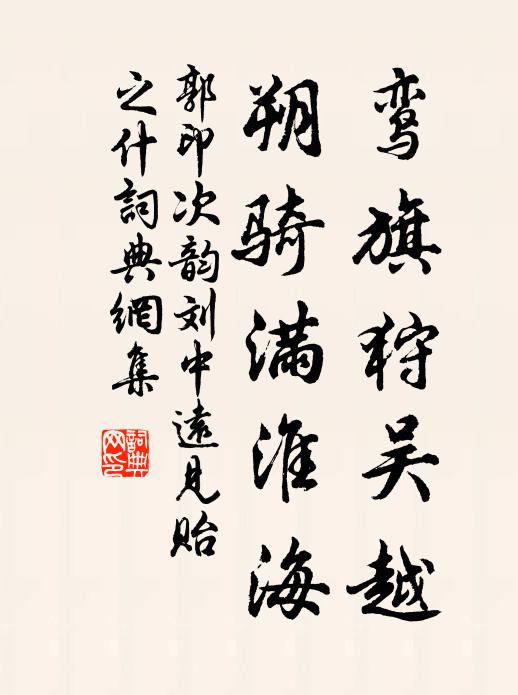 鸾旗狩吴越
朔骑满淮海
郭印次韵刘中遠見貽
之什詞典網集
詞典
网印